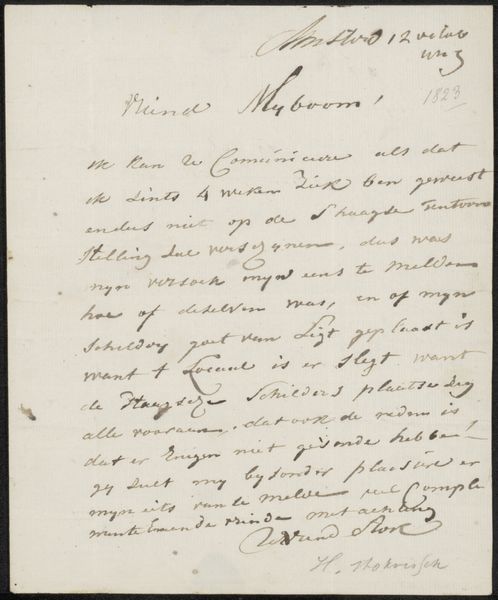 Amsterd 12 octob
1823
Vriend Myboom,
ik kan U Comuniceere als dat
ik sints 4 weken ziek ben geweest
endus niet op de Shaagse tentoon
stelling zal verschynen, dus was
myn versoek myn eens te melden
hoe of deselven was, en of myn
schildery goet van Ligt geplaast is
want t Locaal is er slegt want
de Haagsche Schilders plaatse zig
alle vooraan, dat ook de reden is
dat er Enigen niet gesonde hebbe
gy zult my bysonder plaesier er
myn iets van te melde veel Comple
mente Emende vrinde met achting
UwVriend Stok
H. Stokvisch